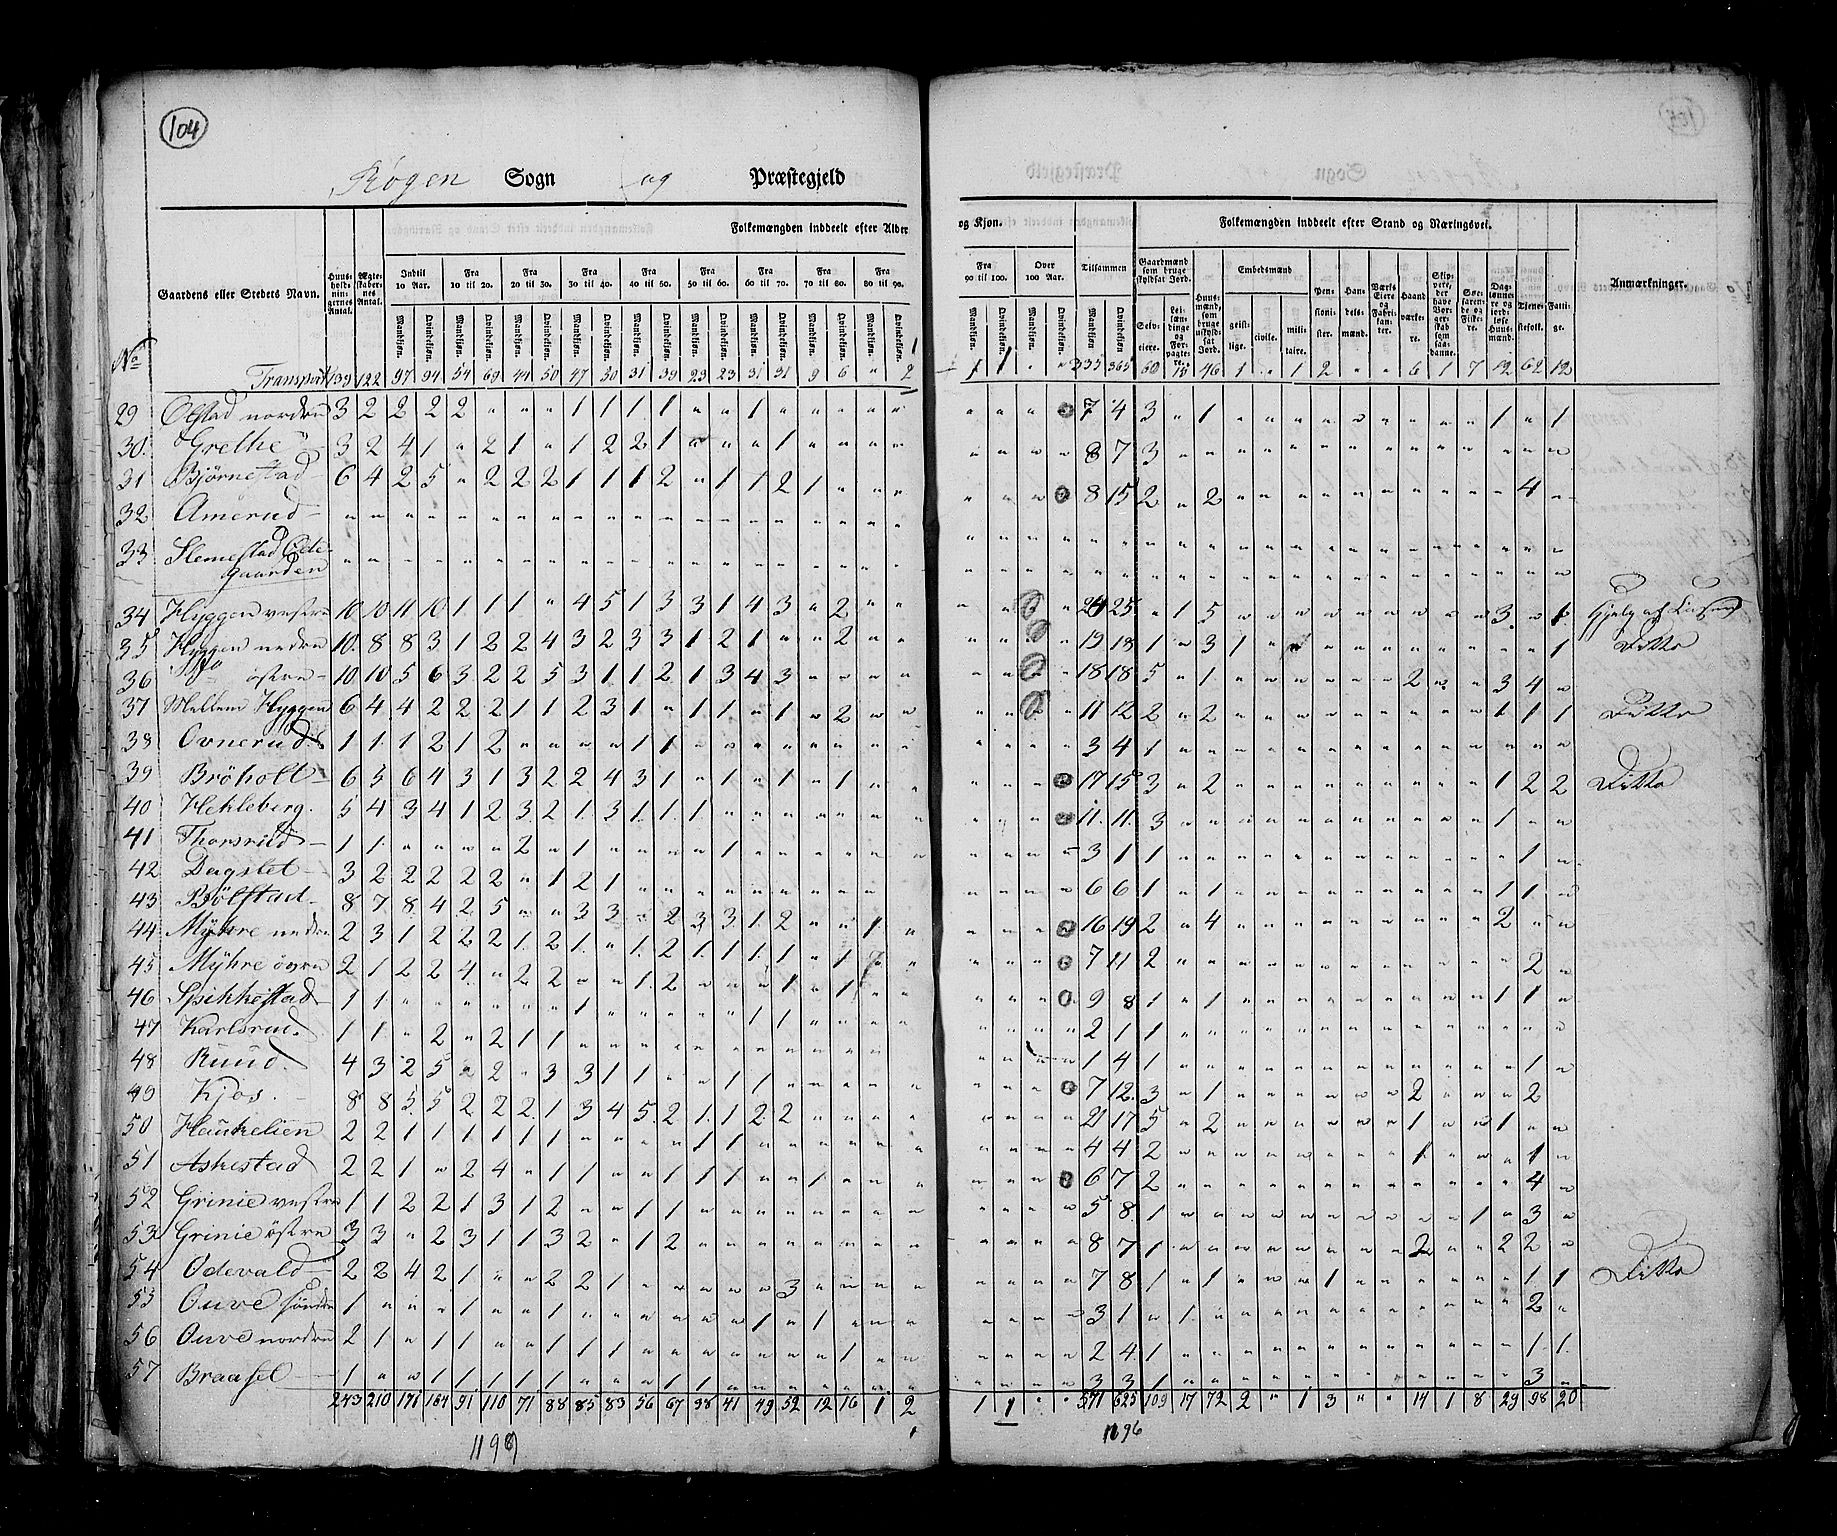 104
Røgen Sogn og Præstegjeld
Folkemængden inddeelt efter Alder og Kjøn.
Folkemængden inddeelt efter Stand og Næringsvei.
Gaardens eller Stedets Navn.
Huusholdningernes Antal.
Ægteskabernes Antal.
Indtil 10 Aar.
Fra 10 til 20.
Fra 20 til 30.
Fra 30 til 40.
Fra 40 til 50.
Fra 50 til 60.
Fra 60 til 70.
Fra 70 til 80.
Fra 80 til 90.
Fra 90 til 100.
Over 100 Aar.
Tilsammen
Mandkjøn. Qvindekjøn.
Gaardmænd som bruge skyldsat Jord.
Selveiere.
Leilændinge og Forpagtere.
Huusmænd, som bruge uskyldsat Jord.
Embedsmænd
geistlige.
civile.
militaire.
Pensionister.
Handelsmænd.
Værks Eiere og Fabrikanter.
Haandværkere.
Skippere, der have Borgerskab som saadanne.
Søefarende og Fiskere.
Daglønnere og jordløse Huusmænd.
Tjenestefolk.
Fattige.
Anmærkninger.
No
Transport 133 122 97 94 54 69 44 50 47 30 31 39 23 23 31 31 9 6 " 2 1 1 " " 335 365 60 46 1 " 1 2 " " 6 1 7 12 62 12
29 Ofstad nordre 3 2 2 2 2 " " " 1 1 1 1 " " 1 " " " " " " " " " 7 4 3 " 1 " " " " " " " " " 1 " 1
30. Grethe 3 2 4 1 " 2 1 " 1 2 2 1 " " " 1 " " " " " " " " 8 7 3 " " " " " " " " " " " " " "
31 Bjørnestad 6 4 2 5 " 2 2 2 1 1 1 2 " 1 1 2 1 " " " " " " " 8 15 2 " 2 " " " " " " " " " " 4 "
32 Amerud " " " " " " " " " " " " " " " " " " " " " " " " " " " " " " " " " " " " " " " " "
33 Slemestad Øde-
gaarden " " " " " " " " " " " " " " " " " " " " " " " " " " " " " " " " " " " " " " " " "
34 Hyggen vestre 10 10 11 10 1 1 1 " 4 5 1 3 3 1 4 3 " 2 " " " " " 24 25 " 1 5 " " " " " " " " " 3 " 1 Hjelp af
35 Hyggen nedre 10 8 8 3 1 2 2 4 3 2 3 3 1 2 1 " " 2 " " " " " 19 18 1 " 3 1 " " " " " " " " " " 1 Ditto
36 Do østre 10 10 5 6 3 2 2 5 3 1 1 2 1 3 4 3 " " " " " " " 18 18 5 " 1 " " " " " " 2 " " 3 4 "
37 Mellem Hyggen 6 4 4 2 2 2 1 1 2 3 1 " 1 1 " 1 " 2 " " " " " 11 12 2 " 2 " " " " " " " " " 1 1 1 Ditto
38 Ovnerud 1 1 1 2 1 2 " " " " 1 1 " " " " " " " " " " " " 3 4 1 " " " " " " " " " " " " " "
39 Bröholt 6 5 6 4 3 1 3 2 2 4 3 1 " 1 " 1 " 1 " " " " " 17 15 3 " 2 " " " " " " " " " 1 2 2 Ditto
40 Hekleberg. 5 4 3 4 1 2 3 2 1 3 1 1 1 " " " " " " " " " " 11 11 3 " " " " " " " " " " " 1 " "
41 Thorsrüd 1 1 " " " " 2 " 1 " " " " 1 " " " " " " " " " " 3 1 1 " " " " " " " " " " " " 1 "
42 Dagslet 3 2 2 2 2 2 " 1 2 1 " " " " " " " " " " " " " " 6 6 1 " 1 " " " " " " " " " 1 1 "
43 Bölstad 8 7 8 4 2 5 " " 3 3 " 2 3 3 1 2 " " 1 " " " " 16 19 2 " 4 " " " " " " " " " 2 " "
44 Myhre nedre 2 3 1 2 2 2 1 2 1 " 1 2 1 1 1 1 " 1 " " " " " 7 11 2 " " " " " " " " " " " " 2 "
45 Myhre övre 2 1 2 2 4 " 2 2 " " 1 2 " " " 1 " 1 " " " " " 9 8 1 " 1 " " " " " " " " " 1 1 "
46 Spikkestad 1 1 " " " " " " 1 " " " " " 1 1 " " " " " " " " 2 1 1 " " " " " " " " " " " " " "
47 Karlsrud. 1 1 " 2 " 2 1 1 " " " " " " " " " " " " " " " " 1 4 1 " " " " " " " " " " " " 1 "
48 Ruud. 4 3 2 5 " 2 " 3 3 1 1 " " 1 1 " " " " " " " " " 7 12 3 " 1 " " " " " " 2 " " " 2
49 Kjos. 8 8 5 5 2 2 2 1 3 4 5 2 1 1 2 2 " " " " " " " 21 17 5 " 2 " " " " " " 1 " " 1 " "
50 Haukelien 2 2 1 1 1 1 1 1 " " " " 1 1 " " " " " " " " " " 4 4 2 " " " " " " " " 1 " " " 1 "
51 Askestad 2 2 1 " 2 4 " 1 1 " " 1 1 1 " 1 " " " " " " " 6 7 2 " " " " " " " " " " " " 4 "
52 Grinie vestre 1 1 2 2 1 3 1 2 " " 1 1 " " " " " " " " " " " " 5 8 1 " " " " " " " " " " 1 " 3 "
53 Grinie østre 3 3 " 2 3 1 1 3 2 " 1 2 " " " " " " " " " " " " 8 7 1 " " " " " " " " 2 " " 2 2 "
54 Odevald 2 2 4 2 1 " " 2 2 1 " " " " " 3 " " " " " " " " 7 8 1 " 1 " " " 1 " " " " " " 1 1 Ditto
55 Ouve søndre 1 " " " 1 " " 1 " " " " " " 1 " 1 " " " " " " 3 1 " 1 " " " " " " " " " " " 2 "
56 Ouve nordre 2 1 " 1 1 " 1 1 1 " " " " " " " " 1 " " " " " 2 4 1 " " " " " " " " " " " " 1 1
57 Braasel 1 " " 1 1 1 1 1 " " 1 1 " " " " " " " " " " " " 3 3 1 " " " " " " " " " " " " 3 "
243 210 171 164 91 110 71 88 85 83 56 67 38 41 49 52 12 16 1 2 1 1 " " 571 625 109 17 72 2 " 1 3 " " 14 1 8 29 98 20
1196